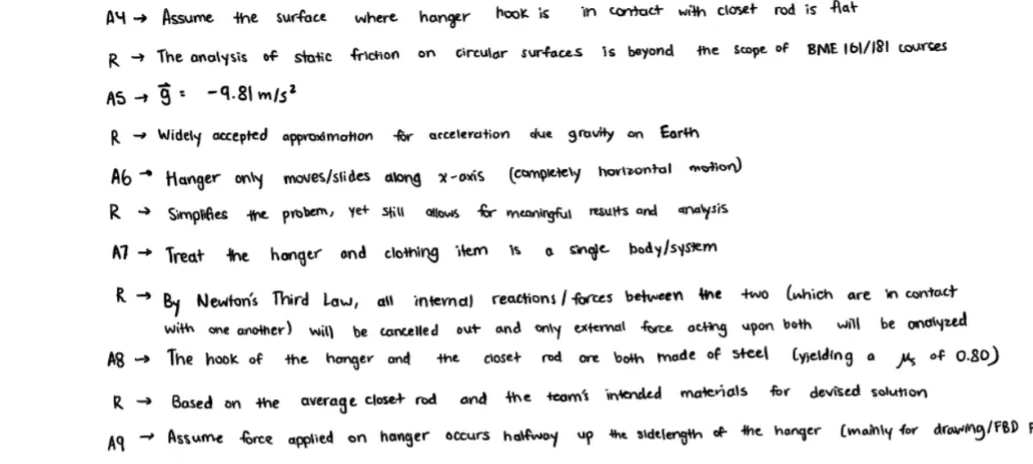 A4 → Assume the surface where hanger hook is in contact with closet rod is flat
R → The analysis of static friction on circular surfaces is beyond the scope of BME 161/181 courses
A5 → g⃗ = -9.81 m/s²
R → Widely accepted approximation for acceleration due gravity on Earth
A6 → Hanger only moves/slides along x-axis (completely horizontal motion)
R → Simplifies the probem, yet still allows for meaningful results and analysis
A7 → Treat the hanger and clothing item is a single body/system
R → By Newton's Third Law, all internal reactions/forces between the two (which are in contact
with one another) will be cancelled out and only external force acting upon both will be analyzed
A8 → The hook of the hanger and the closet rod are both made of steel (yielding a μs of 0.80)
R → Based on the average closet rod and the team's intended materials for devised solution
A9 → Assume force applied on hanger occurs halfway up the sidelength of the hanger (mainly for drawing/FBD